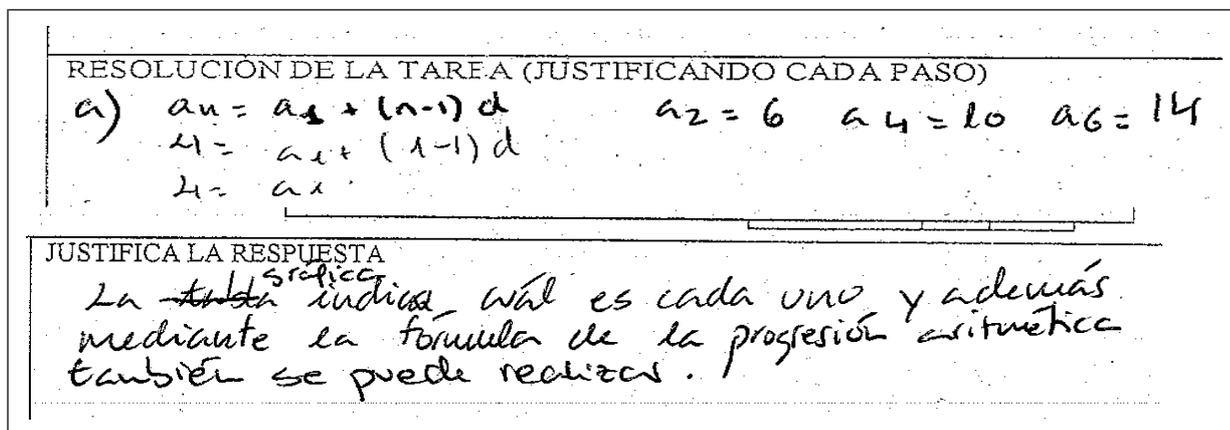 RESOLUCIÓN DE LA TAREA (JUSTIFICANDO CADA PASO)
a) an = a1 + (n-1) d a2 = 6 a4 = 10 a6 = 14
4 = a1 + (1-1) d
4 = a1
JUSTIFICA LA RESPUESTA
La tabla gráfica indica cuál es cada uno y además
mediante la fórmula de la progresión aritmética
también se puede realizar.